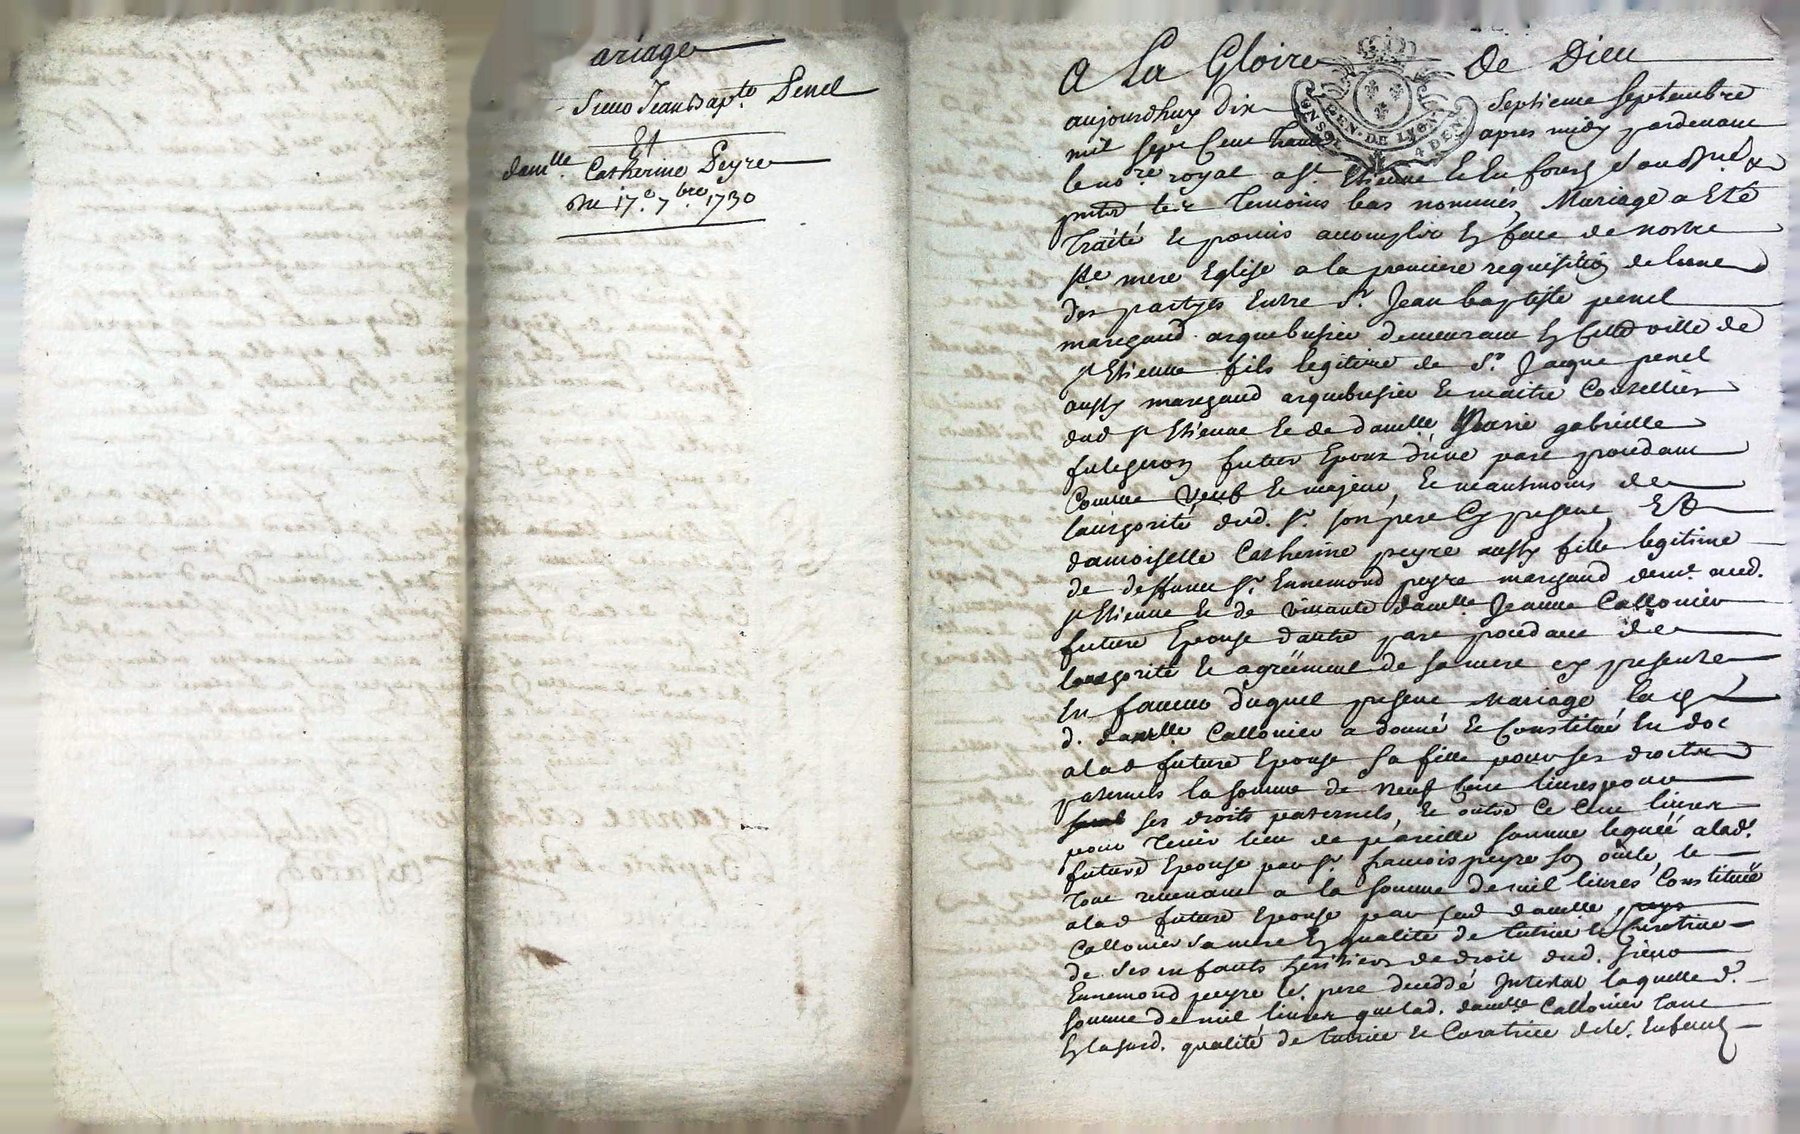 ariage
Sieur Jean Bapt.te Penel
Et
dam.lle Catherine Peyre
Du 17.e 7.bre 1730
A La Gloire de Dieu
aujourdhuy dix septieme septembre
mil sept Cent Trente apres midy pardevant
le no.re royal a S.t Etienne En forest
temoins bas nommés, Mariage a Eté
Traité et promis accomplir En face de nostre
S.te mere Eglise a la premiere requisition de lune
des partyes Entre S.r Jean baptiste penel
marchand arquebusier demeurant En cette ville de
S.t Etienne fils legitime de S.r Jacque penel
aussy marchand arquebusier et maitre Coutellier
dud S.t Etienne et de damelle Marie gabrielle
futur Epoux d'une part procedant
Comme veuf et majeur, et neantmoins de
lauthorité dud. S.r son pere Cy present, Et
damoiselle Catherine peyre aussy fille legitime
de deffunct S.r Ennemond peyre marchand dem.t aud.
S.t Etienne et de vivante damelle Jeanne Callonier
future Epouse dautre part procedant de
lauthorité et agréement de sa mere cy presente
En faveur duquel present Mariage la
d. damelle Callonier a donné et Constitué En dot
a lad future Epouse sa fille pour ses droits
paternels la somme de neuf Cent livres pour
ses droits paternels, et outre ce Cent livres
pour tenir lieu de pareille somme leguée a lad.
future Epouse par S.r francois peyre son oncle, le
tout revenant a la somme de mil livres Constituée
a lad future Epouse par lad damelle
Callonier sa mere En qualité de tutrice et Curatrice
de ses enfants heritiers de droit dud. sieur
Ennemond peyre le. pere decedé Intestat laquelle d.
somme de mil livres que lad. damelle Callonier tant
En lasusd. qualité de tutrice et Curatrice desd. Enfants